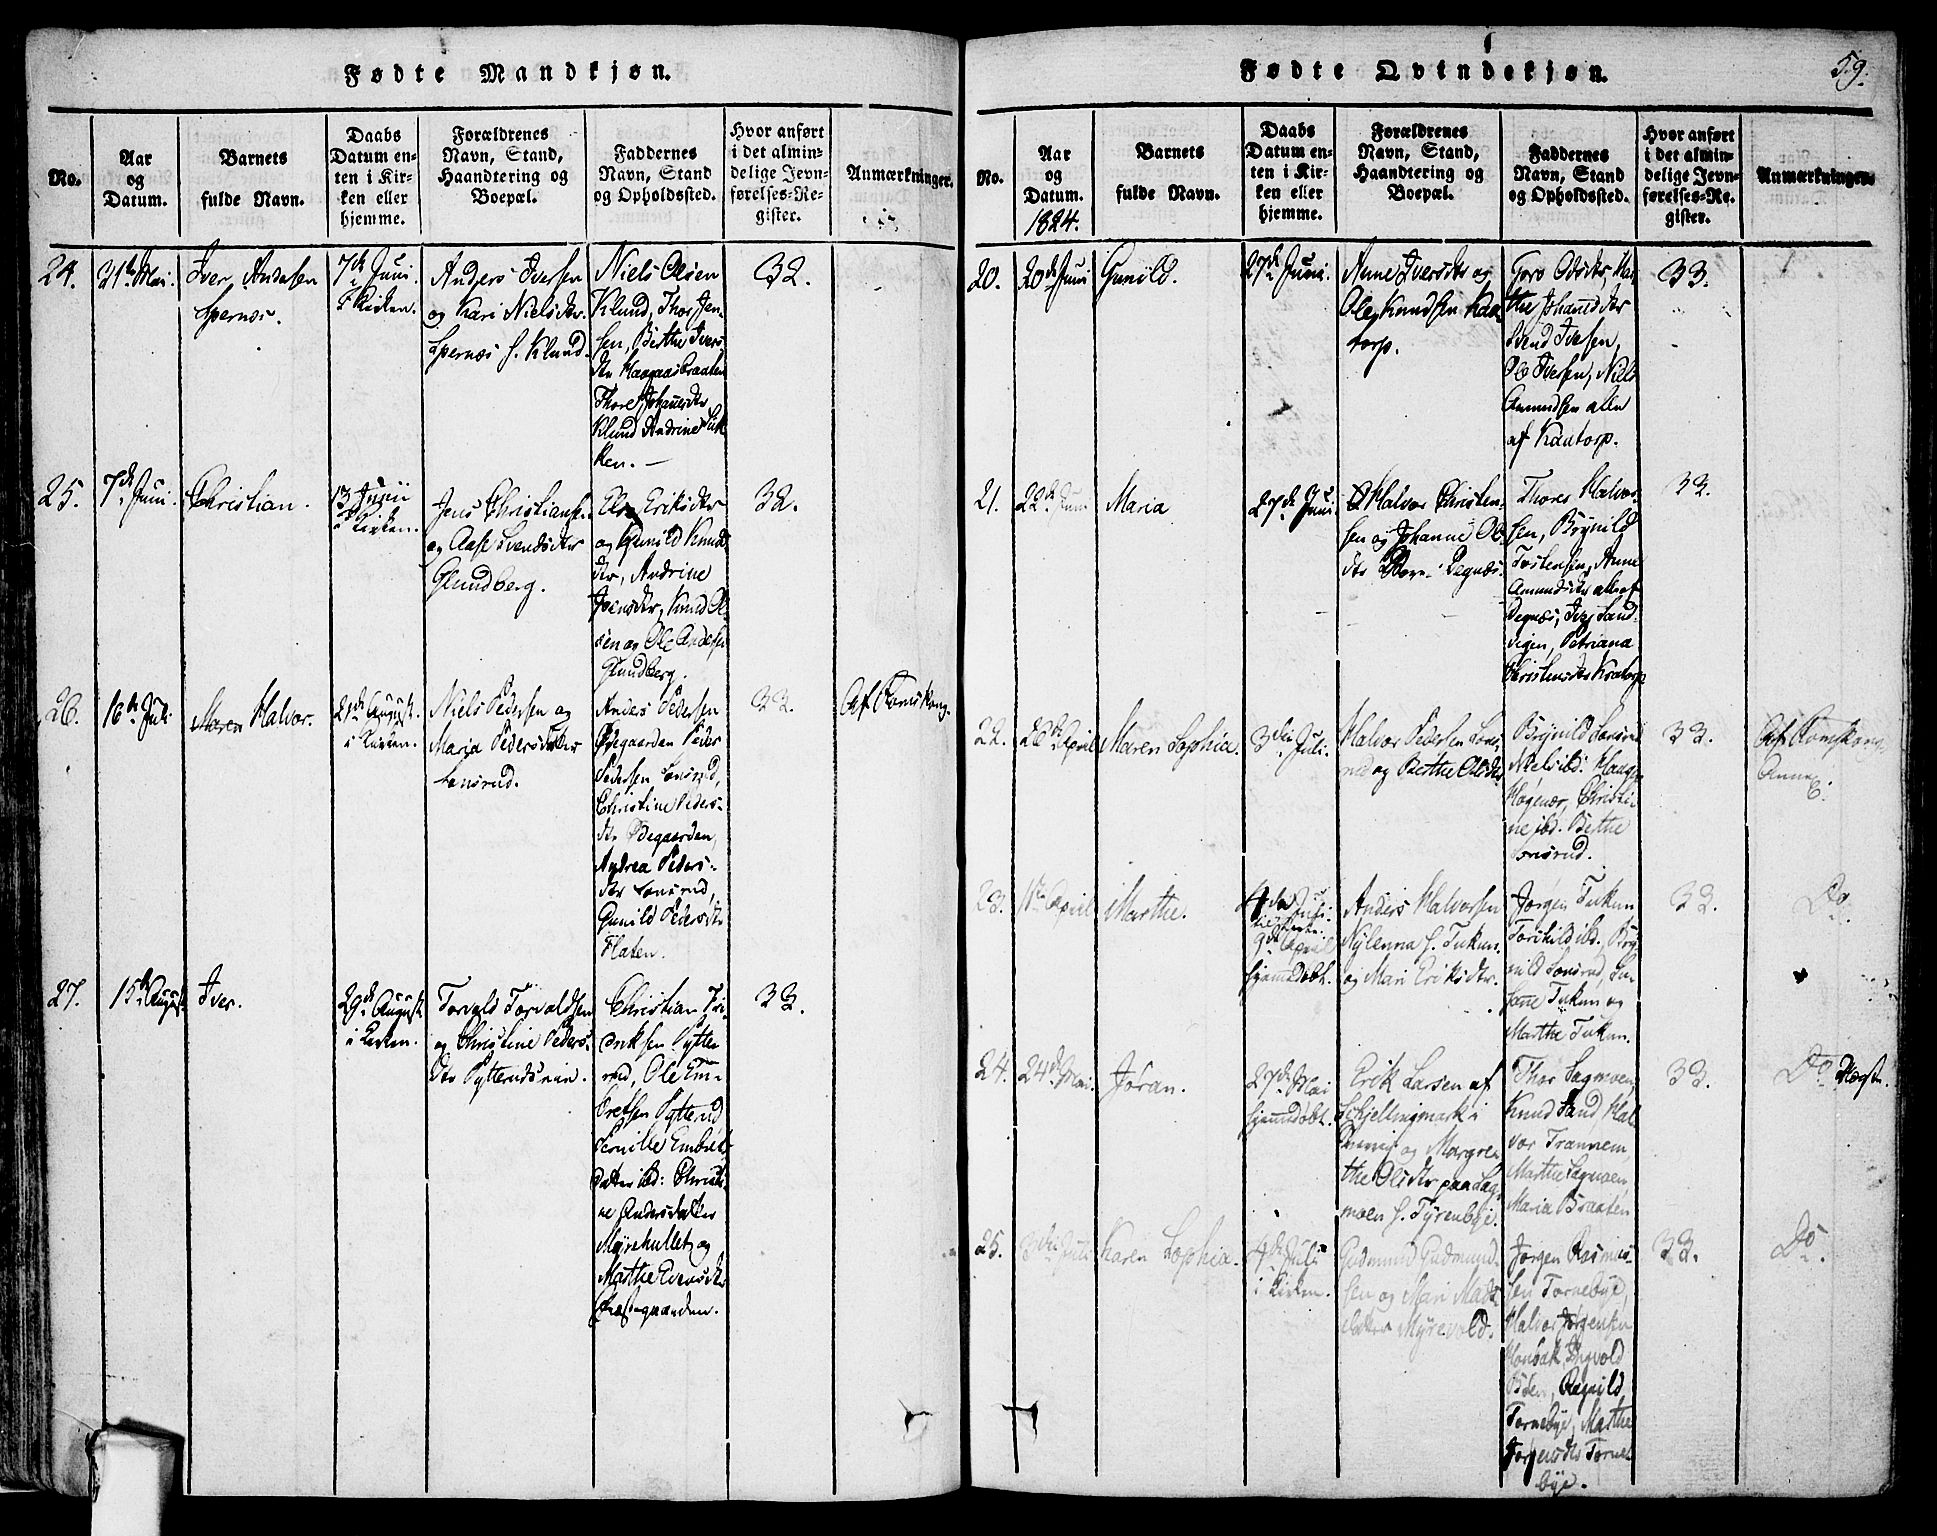 Fødte Mandkjøn.
No.
Aar
og
Datum.
Barnets
fulde Navn.
Daabs
Datum en-
ten i Kir-
ken eller
hjemme.
Forældrenes
Navn, Stand,
Haandtering og
Boepæl.
Faddernes
Navn, Stand
og Opholdssted.
Hvor anført
i det almin-
delige Jevn-
førelses-Re-
gister.
Anmærkninger.
24.
31te Mai.
Iver Andersen
7de Juni
i Kirken.
Anders Iversen
og Kari Nielsdtr
Niels Olsen
Klund, Thor Jen-
sen, Berthe Ivers
dtr Haagaasbraaten
Thore Johannesdtr
Klund Andrine
ken. —
32.
25.
7de Juni.
Christian.
13 Junii
i Kirken.
Jens Christianse.
og Aase Svendsdtr
Glundberg.
Else Eriksdtr
og Gunild Knuds
dtr, Andrine
Jensdtr, Knud Ol-
sen og Ole Andersen
Glundberg.
32.
26.
16de Juli
Maren Halvor.
21de August.
i Kirken.
Niels Pedersen og
Maria Pedersdatter
Sonsrud.
Anders Pedersen
Ødegaarden Peder
Pedersen Sonsrud,
Christine Peders-
dtr Ødegaarden,
Andrea Peders-
dtr Sonsrud,
Gunild Pedersdtr
Flaten.
33.
Af Romskoug.
27.
15de August
Iver.
29de August
i Kirken.
Torvald Torvaldsen
og Christine Peders-
dtr
Christian Fri-
driksen Sytte-
rud, Ole Em-
bretsen Sytterud
Pernille Embrets
datter ibd: Christi-
ne Andersdatter
Myrehullet og
Marthe Evensdtr
Præstegaarden.
33.
Fødte Qvindekjøn.
59.
No.
Aar
og
Datum.
1824.
Barnets
fulde Navn.
Daabs
Datum en-
ten i Kir-
ken eller
hjemme.
Forældrenes
Navn, Stand,
Haandtering og
Boepæl.
Faddernes
Navn, Stand
og Opholdssted.
Hvor anført
i det almin-
delige Jevn-
førelses-Re-
gister.
Anmærkninger.
20.
20de Juni
Gunild.
27de Juni.
Anne Iversdtr og
Ole Knudsen Kaa-
torp.
Goro Olsdtr, Mar-
the Johansdtr
Svend Iversen,
Ole Iversen, Niels
Amundsen alle
af Kaatorp.
33.
21.
22de Juni
Maria
27de Juni
Halvor Christen-
sen og Johanne Ols
dtr Degnæs.
Thores Halvor-
sen, Brynild
Tostensen, Anne
Amundsdtr alle af
Degnæs, Iver Sand-
vigen, Petriana
Christensdtr Kaatorp
33.
22.
26de April
Maren Sophia.
3die Juli.
Halvor Pedersen Sons-
rud og Berthe Olsdtr
Brynild Sonsrud
Niels ibd. Hauge
Høgenær, Christi-
ne ibd. Berthe
Sonsrud.
33.
Af Romskoug
Annex.
23.
April
Marthe.
4de Juli
9de April
hjemmedøbt.
Anders Halvorsen
Nylenna f. Tukun.
og Mari Eriksdtr.
Jørgen Tukun
Torchild ibd., Bry-
nild Sonsrud, Su-
sane Tukun og
Marthe Tukun.
33.
Do
24.
24de Mai.
Jøran.
27de Mai
hjemmedøbt.
Erik Larsen af
Schjellingmark i
og Margre-
the Olsdtr paa Sag-
moen f. Tyrenbye.
Thor Sagmoen,
Knud Sand, Hal-
vor Trannem,
Marthe Sagmoen,
Maria Braaten
33.
Do
25.
3die Juli
Karen Sophia.
4de Juli
i Kirken.
Gudmund Gudmund-
sen og Mari Mads
datter Myrevold.
Jørgen Rasmus-
sen Tornebye,
Halvor Jørgensen
Ingvold
Bøen, Ragnild
Tornebye, Marthe
Jørgensdtr Torne-
bye.
33.
Do